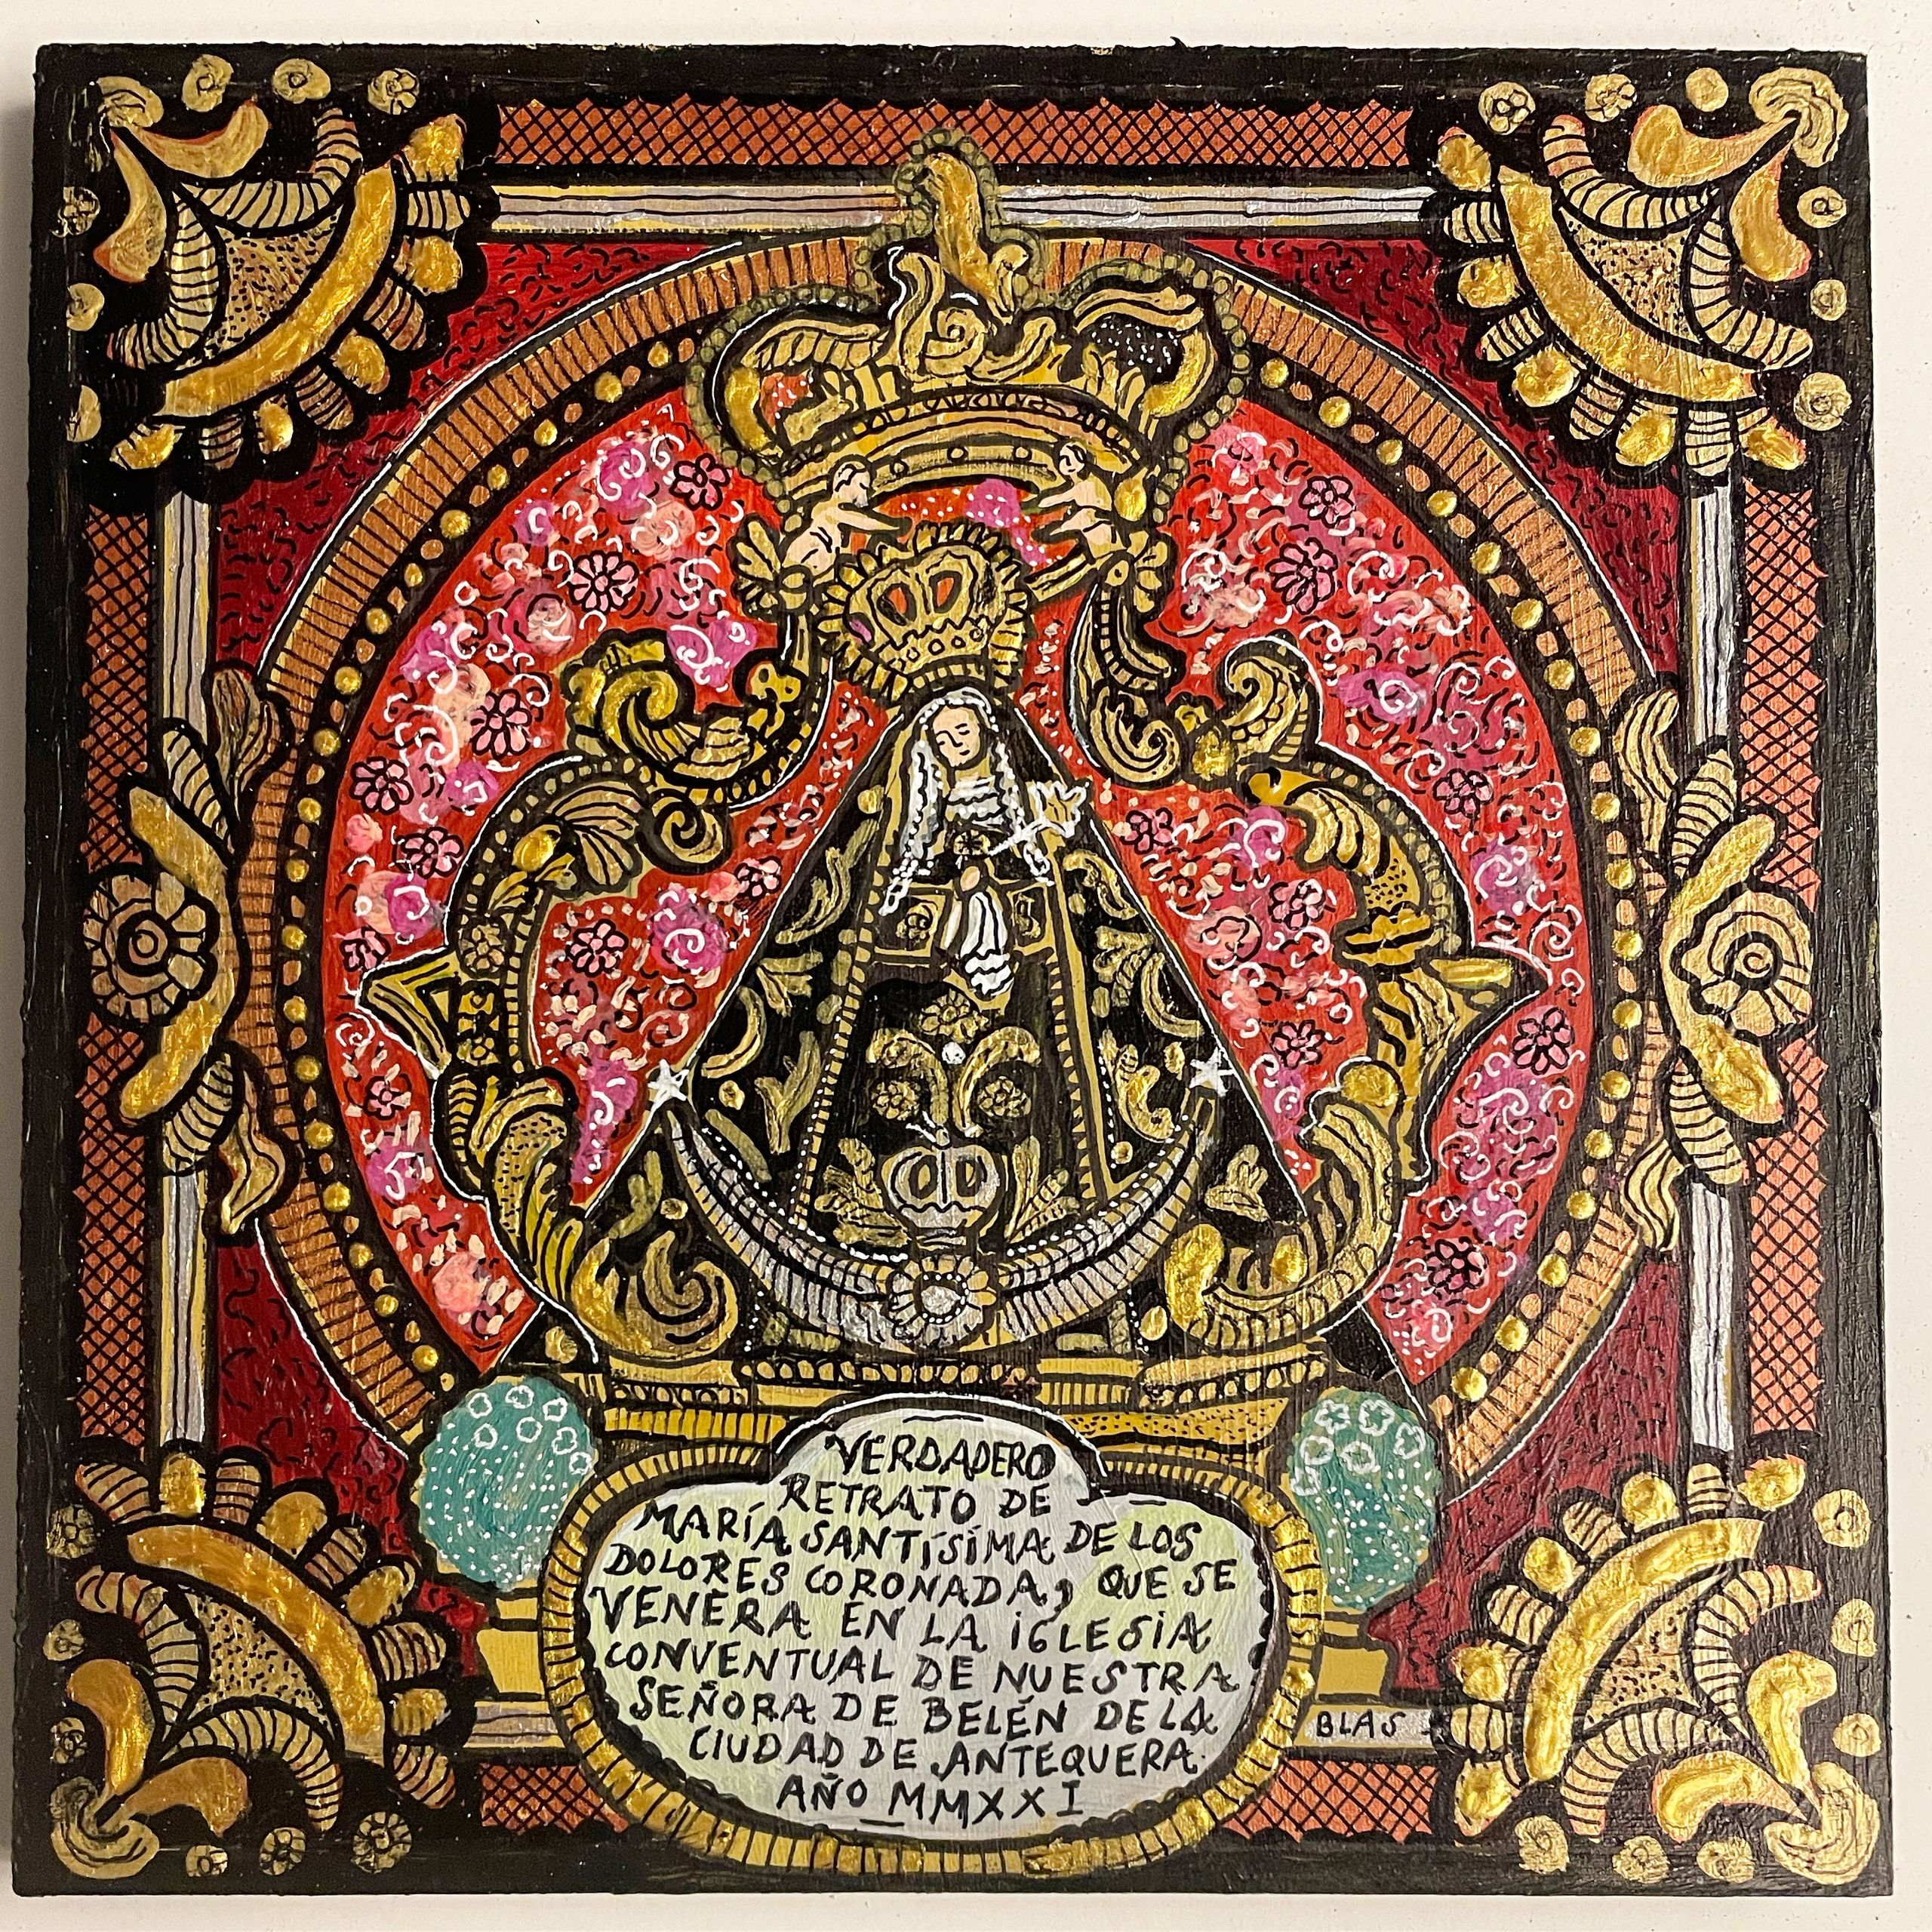 VERDADERO
RETRATO DE
MARÍA SANTÍSIMA DE LOS
DOLORES CORONADA, QUE SE
VENERA EN LA IGLESIA
CONVENTUAL DE NUESTRA
SEÑORA DE BELÉN DE LA
CIUDAD DE ANTEQUERA.
AÑO MMXXI
BLAS